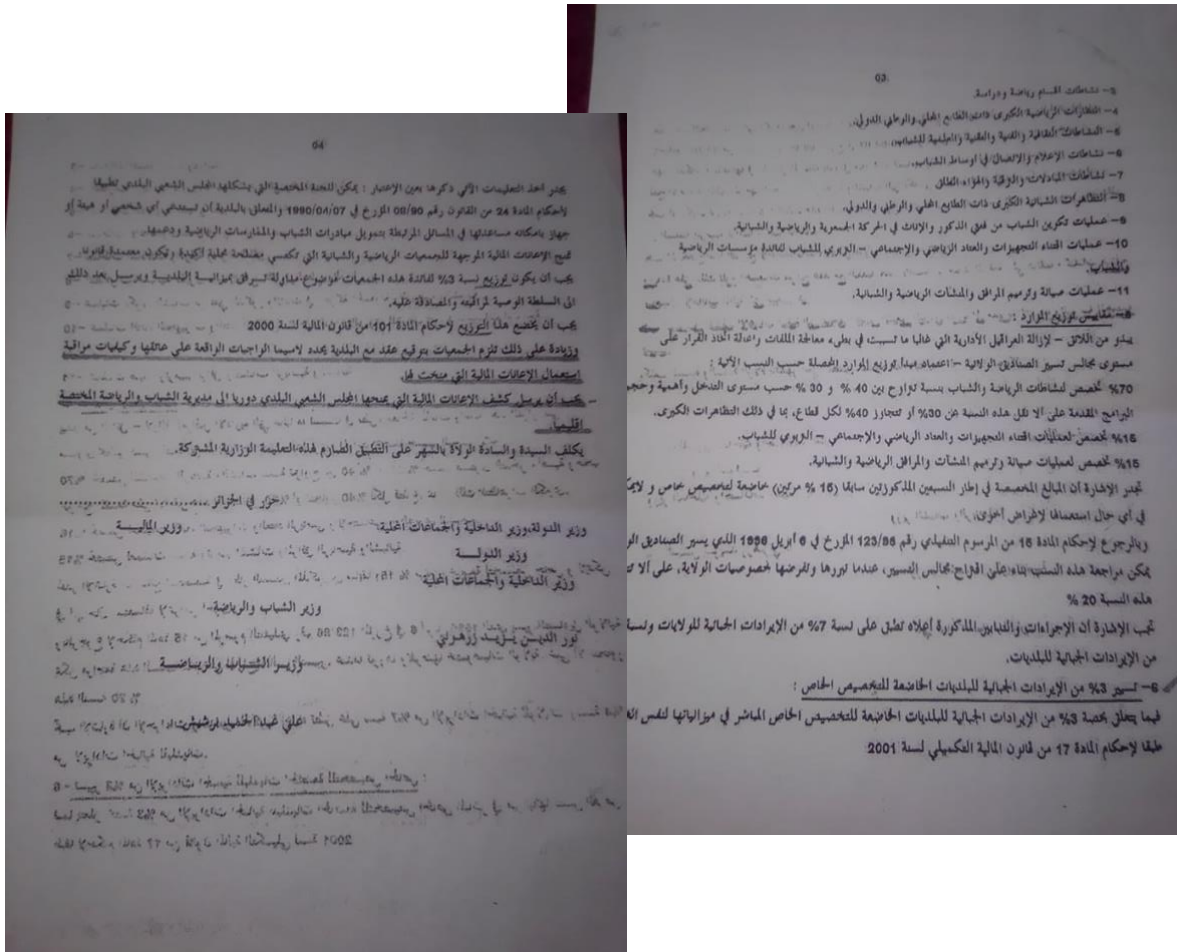 03
3- نشاطات اقسام رياضة ودراسة.
4- التظاهرات الرياضية الكبرى ذات الطابع المحلي والوطني الدولي.
5- النشاطات الثقافية والفنية والعلمية للشباب.
6- نشاطات الإعلام والاتصال في اوساط الشباب.
7- نشاطات المبادلات والترقية والهواء الطلق
8- التظاهرات الشبانية الكبرى ذات الطابع المحلي والوطني والدولي.
9- عمليات تكوين الشباب من فئتي الذكور والإناث في الحركة الجمعوية والرياضية والشبانية.
10- عمليات اقتناء التجهيزات والعتاد الرياضي والإجتماعي – التربوي للشباب لفائدة مؤسسات الرياضية
والشباب.
11- عمليات صيانة وترميم المرافق والمنشآت الرياضية والشبانية.
مقاييس توزيع الموارد :
يبدو من اللائق – لإزالة العراقيل الأدارية التي غالبا ما تسببت في بطىء معالجة الملفات واتخاذ القرار على
مستوى مجالس تسيير الصناديق الولائية – اعتماد مبدأ توزيع الموارد المحصلة حسب النسب الآتية :
70% تخصص لنشاطات الرياضة والشباب بنسبة تتراوح بين 40 % و 30 % حسب مستوى التدخل وأهمية وحجم
البرامج المقدمة على ألا تقل هذه النسبة عن 30% أو تتجاوز 40% لكل قطاع، بما في ذلك التظاهرات الكبرى.
15% تخصص لعمليات اقتناء التجهيزات والعتاد الرياضي والإجتماعي – التربوي للشباب.
15% تخصص لعمليات صيانة وترميم المنشآت والمرافق الرياضية والشبانية.
تجدر الإشارة أن المبالغ المخصصة في إطار النسبتين المذكورتين سابقا (15 % مرتين) خاضعة لتخصيص خاص و لايمك
في أي حال استعمالها لإغراض أخرى.
وبالرجوع لإحكام المادة 15 من المرسوم التنفيذي رقم 123/96 المؤرخ في 6 أبريل 1996 الذي يسير الصناديق الو
يمكن مراجعة هذه النسب بناء على اقتراح مجالس التسيير، عندما تبررها وتفرضها خصوصيات الولاية، على ألا تت
هذه النسبة 20 %
تجب الإشارة أن الإجراءات والتدابير المذكورة أعلاه تطبق على نسبة 7% من الإيرادات الجبائية للولايات ونسبة
من الإيرادات الجبائية للبلديات.
6- تسيير 3% من الإيرادات الجبائية للبلديات الخاضعة للتخصيص الخاص :
فيما يتعلق بحصة 3% من الإيرادات الجبائية للبلديات الخاضعة للتخصيص الخاص المباشر في ميزانياتها لنفس الغ
طبقا لإحكام المادة 17 من قانون المالية التكميلي لسنة 2001
04
يجدر اخذ التعليمات الآتي ذكرها بعين الإعتبار : يمكن للجنة المختصة التي يشكلها المجلس الشعبي البلدي تطبيقا
لاحكام المادة 24 من القانون رقم 08/90 المؤرخ في 1990/04/07 والمتعلق بالبلدية أن تستدعي أي شخص أو هيئة أو
جهاز بامكانه مساعدتها في المسائل المرتبطة بتمويل مبادرات الشباب والممارسات الرياضية ودعمها.
تمنح الإعانات المالية الموجهة للجمعيات الرياضية والشبانية التي تكتسي مصلحة محلية أكيدة وتكون معتمدة قانونا.
يجب أن يكون توزيع نسبة 3% لفائدة هذه الجمعيات موضوع مداولة ترفق بميزانية البلدية ويرسل بعد ذلك
الى السلطة الوصية لمراقبته والمصادقة عليه.
يجب أن يخضع هذا التوزيع لإحكام المادة 101 من قانون المالية لسنة 2000
وزيادة على ذلك تلتزم الجمعيات بتوقيع عقد مع البلدية يحدد لاسيما الواجبات الواقعة على عاتقها وكيفيات مراقبة
إستعمال الإعانات المالية التي منحت لها.
- يجب أن يرسل كشف الإعانات المالية التي يمنحها المجلس الشعبي البلدي دوريا الى مديرية الشباب والرياضة المختصة
إقليميا.
يكلف السيدة والسادة الولاة بالسهر على التطبيق الصارم لهذه التعليمة الوزارية المشتركة.
حرر في الجزائر
وزير الدولة،وزير الداخلية والجماعات المحلية وزير المالية
وزير الدولة
وزير الداخلية والجماعات المحلية
وزير الشباب والرياضة
نور الدين يزيد زرهوني
وزير الشباب والرياضة